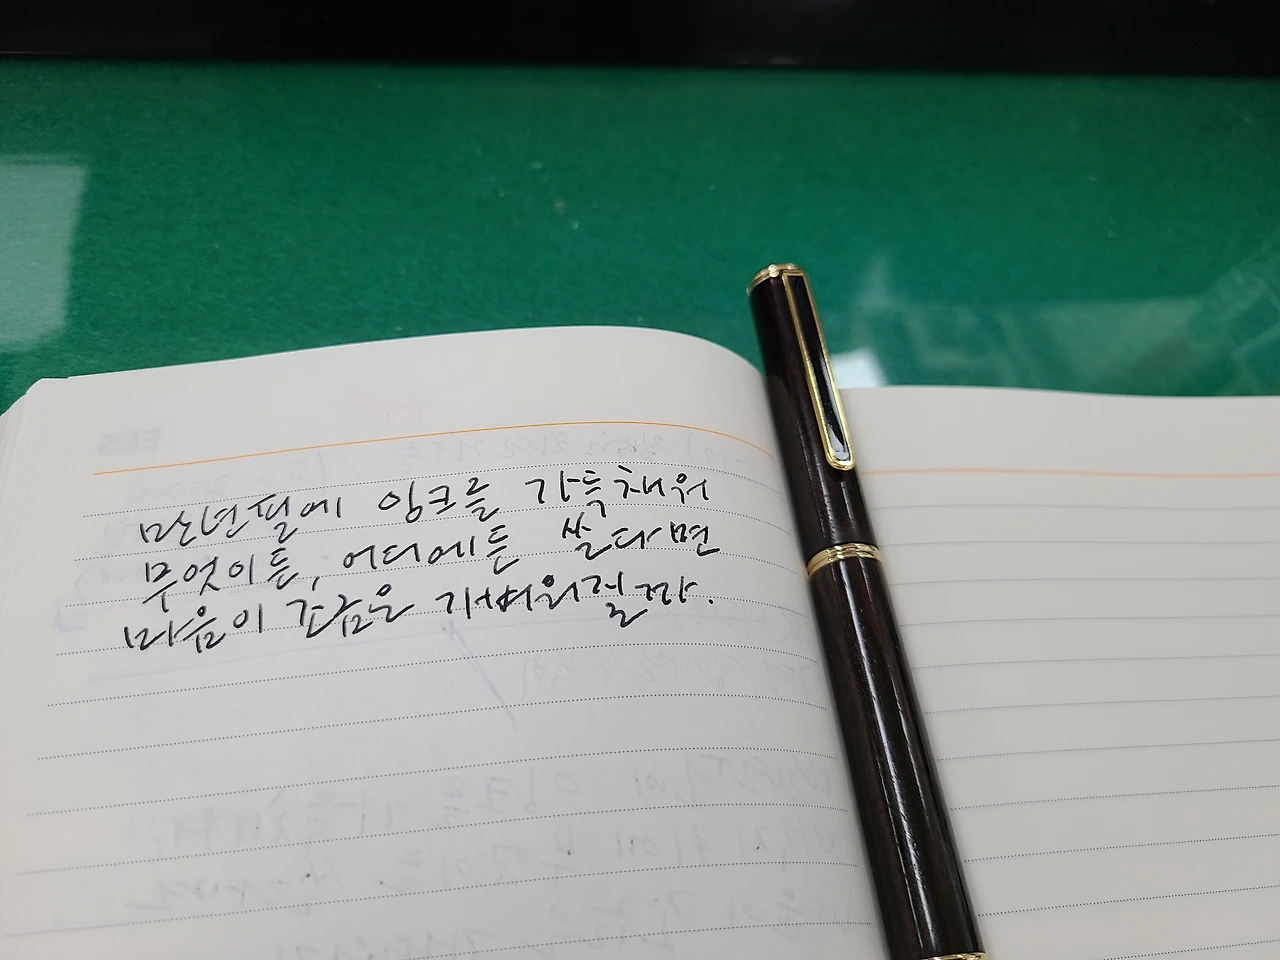 만년필에 잉크를 가득채워
무엇이든, 어디에든 쓸다면
마음이 조금은 가벼워질까.